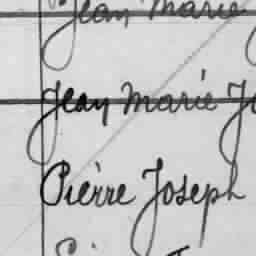 Jean Marie
Jean Marie
Pièrre Joseph